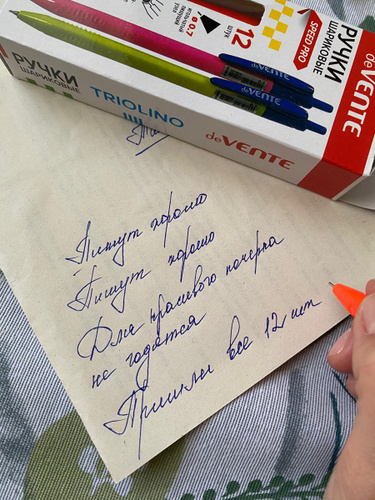 12
штук
ø 0,7
SPEED PRO
РУЧКИ
ШАРИКОВЫЕ
deVENTE
РУЧКИ
ШАРИКОВЫЕ
TRIOLINO
deVENTE
deVENTE
deVENTE
Пишут хорошо
Пишут хорошо
Для красивого почерка
не годятся
Пришли все 12 шт